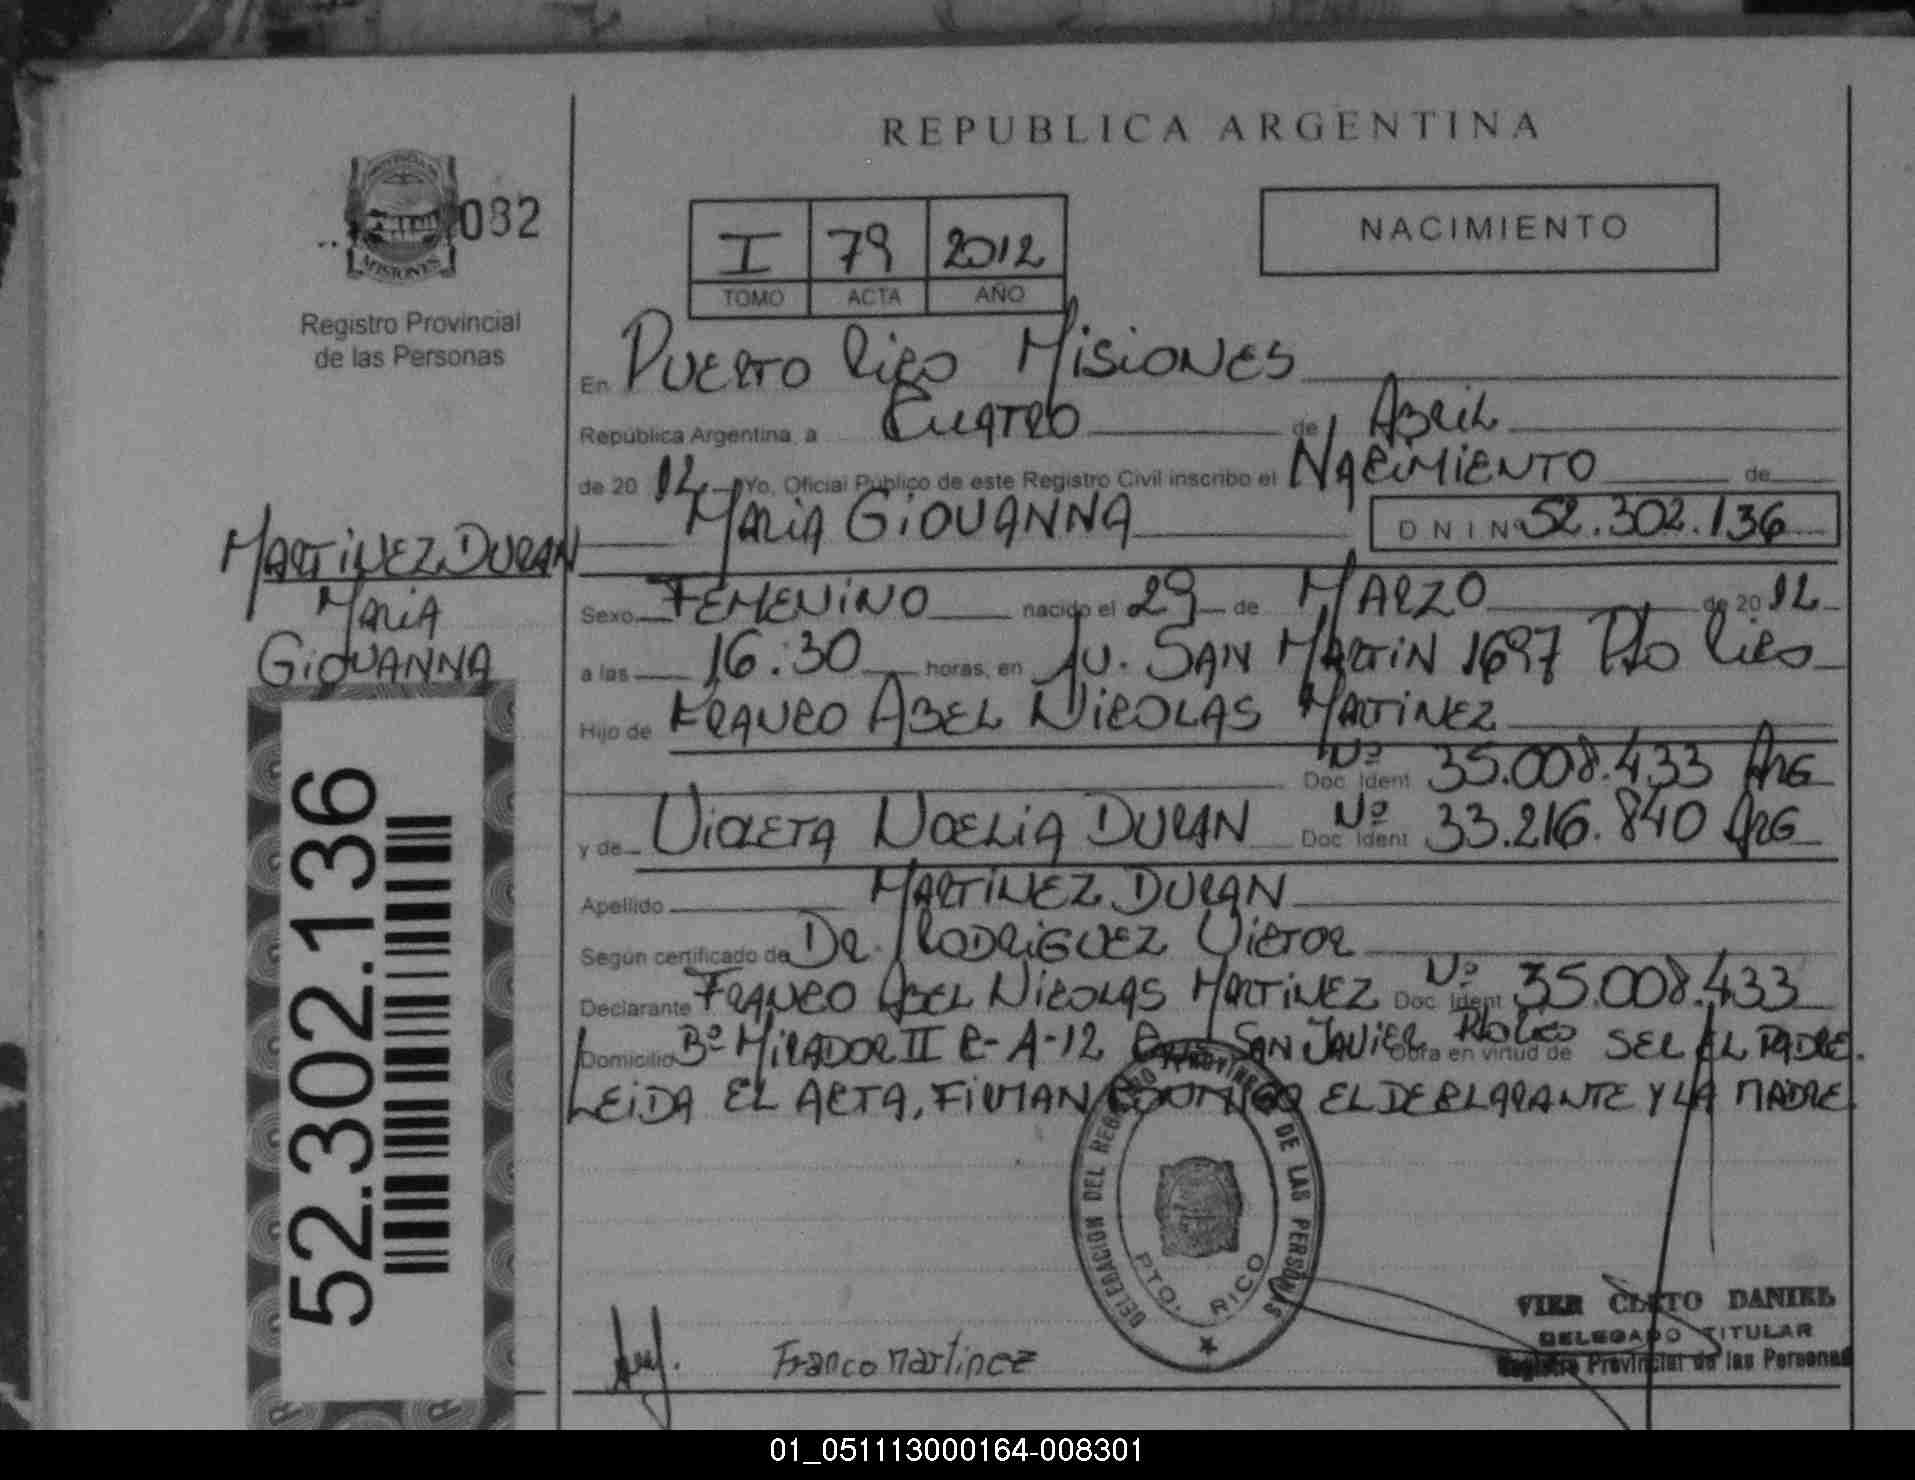 REPUBLICA ARGENTINA
082
MISIONES
Registro Provincial
de las Personas
I 79 2012
TOMO ACTA AÑO
NACIMIENTO
En Puerto Rico Misiones
República Argentina, a Cuatro de Abril
de 2012 Yo, Oficial Público de este Registro Civil inscribo el Nacimiento de
Maria Giovanna DNI Nº 52.302.136
Martinez Duran
Maria
Giovanna
52.302.136
Sexo Femenino nacido el 29 de Marzo de 2012
a las 16:30 horas, en Av. San Martin 1697 Pto Rico
Hijo de Franco Abel Nicolas Martinez
Doc Ident Nº 35.008.433 Arg
y de Violeta Noelia Duran Doc Ident Nº 33.216.840 Arg
Apellido Martinez Duran
Según certificado de Dr. Rodriguez Victor
Declarante Franco Abel Nicolas Martinez Doc Ident Nº 35.008.433
Domicilio Bº Mirador II C-A-12 San Javier Pto Rico Obra en virtud de ser el padre.
Leida el acta, firman conmigo el declarante y la madre
DELEGACION DEL REGISTRO PROVINCIAL DE LAS PERSONAS
PTO. RICO
Franco martinez
VIER CLETO DANIEL
DELEGADO TITULAR
Registro Provincial de las Personas
01_051113000164-008301